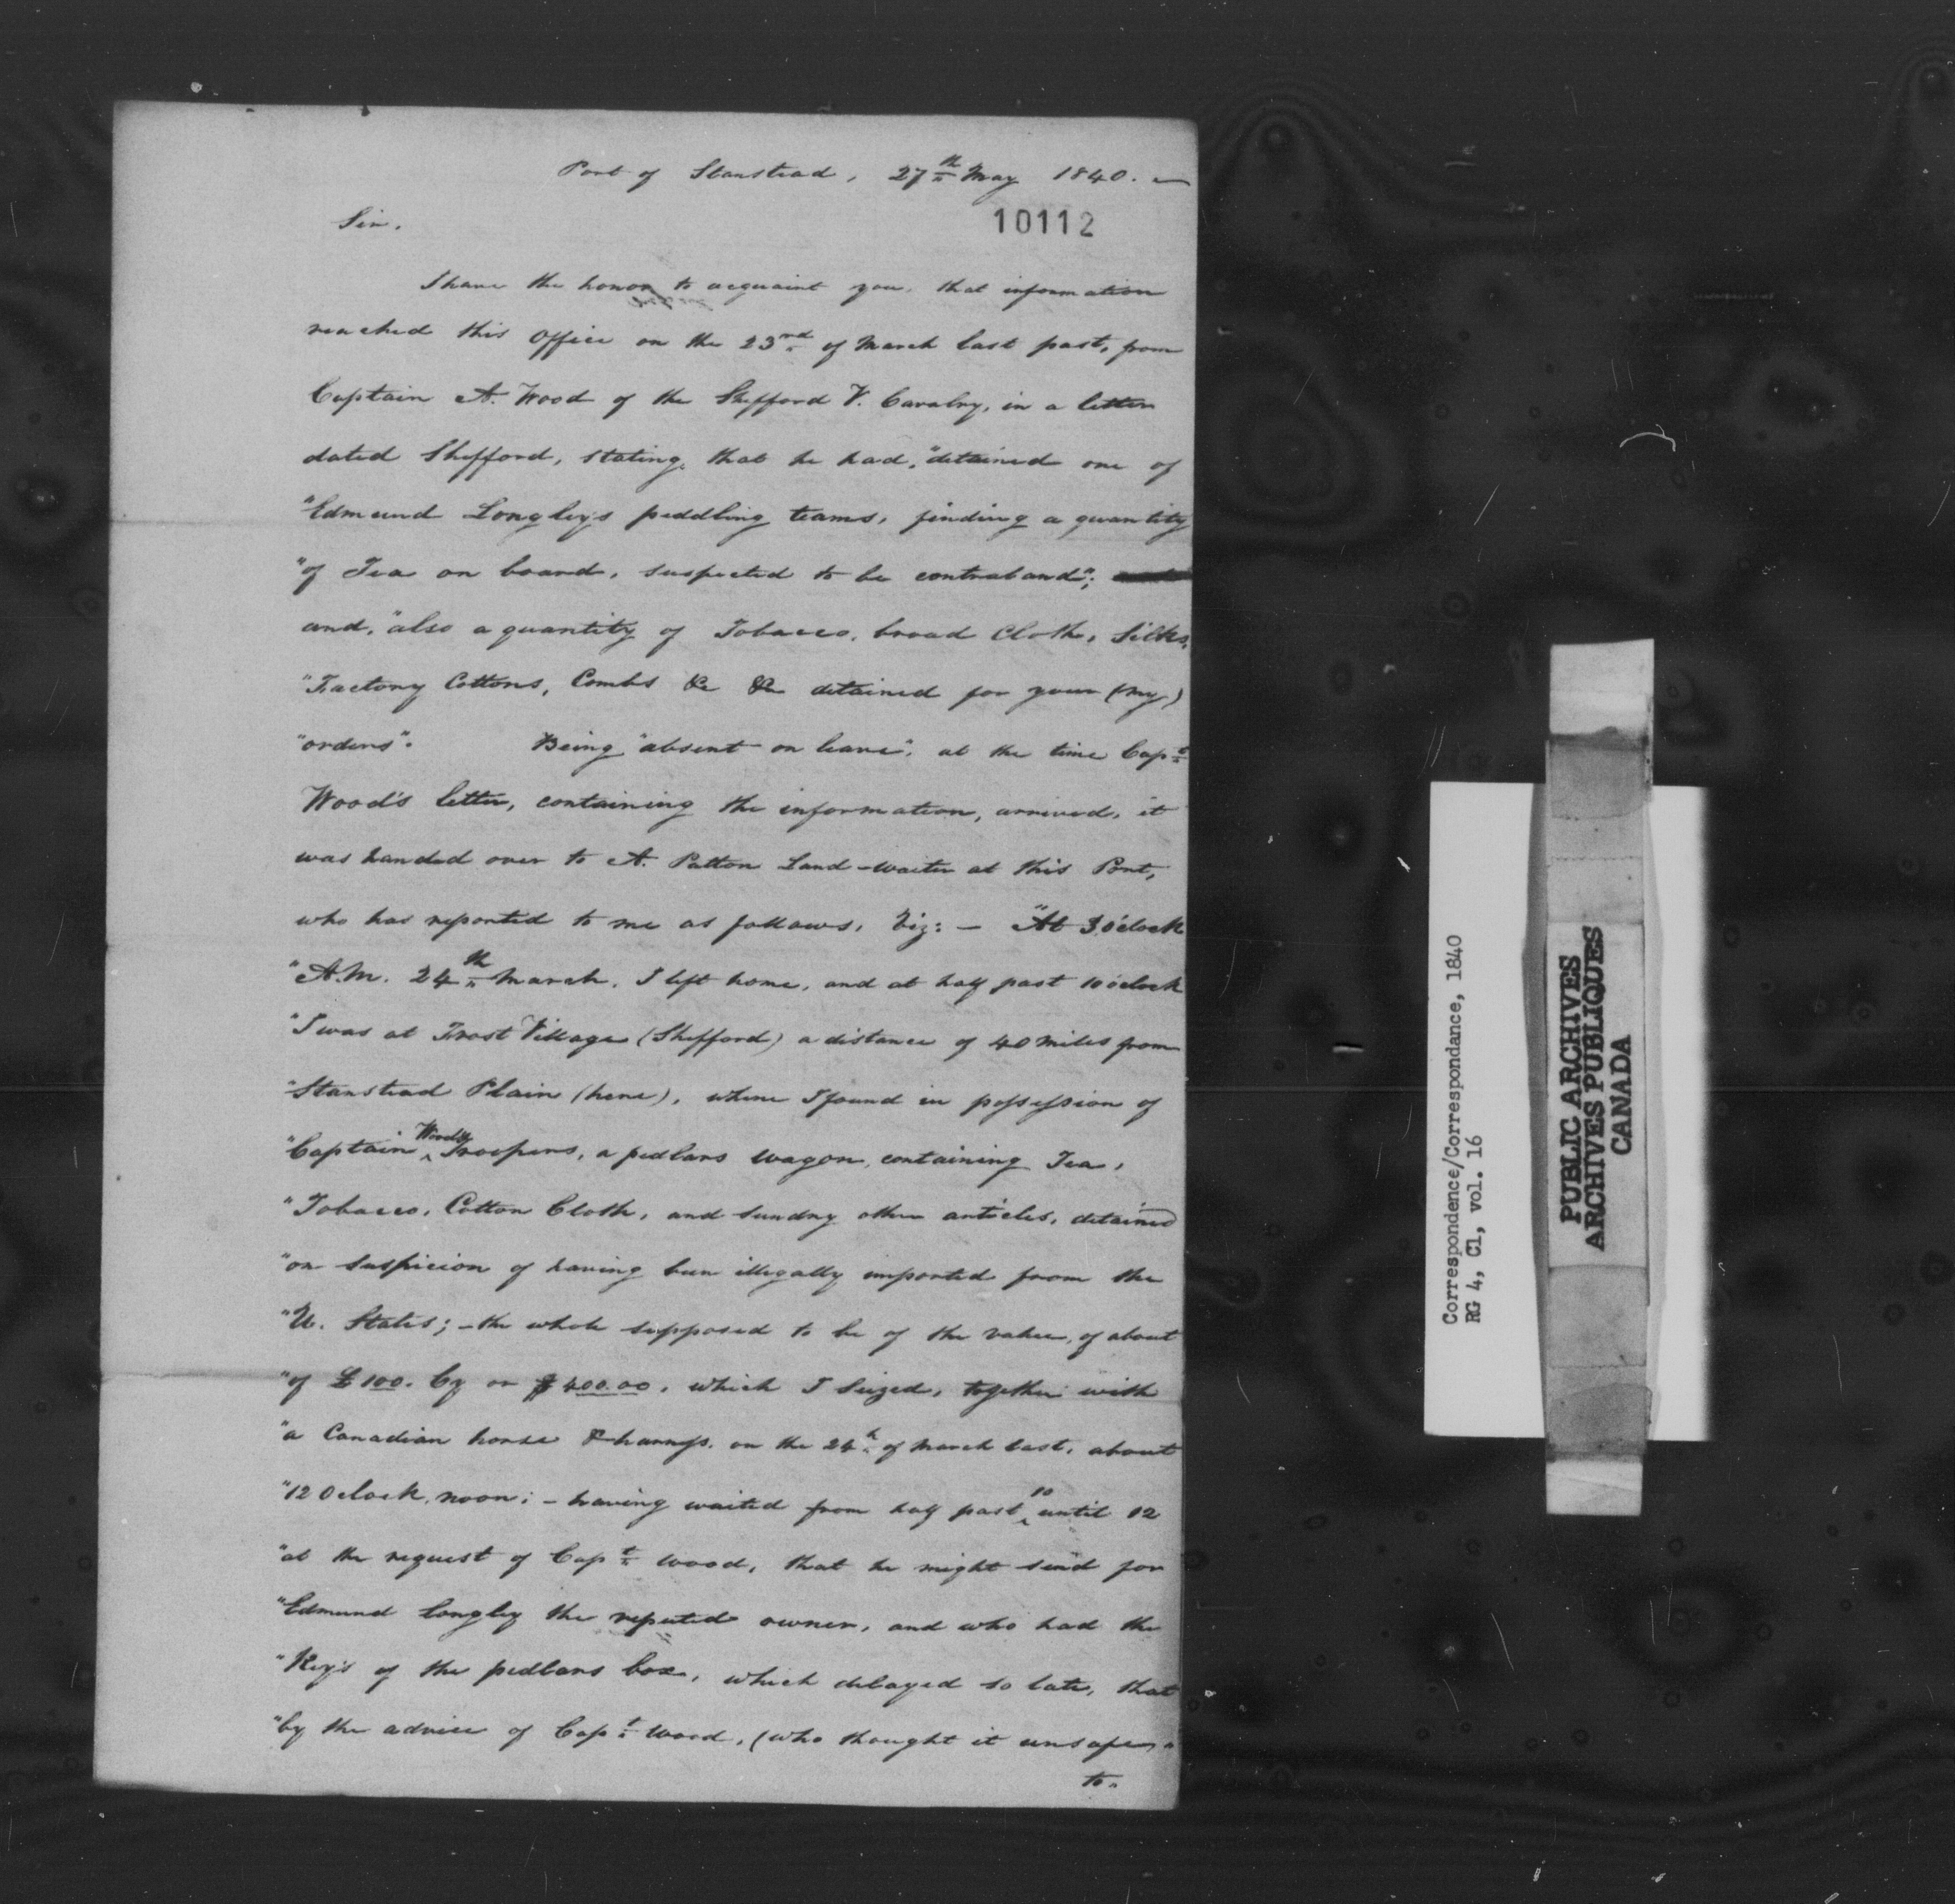 Port of Stanstead, 27th May 1840. —
10112
Sir.
I have the honor to acquaint you, that information
reached this Office on the 23rd of March last past, from
Captain A. Wood of the Shefford V. Cavalry, in a letter
dated Shefford, stating, that he had, "detained one of
"Edmund Longley's peddling teams, finding a quantity
"of Tea on board, suspected to be contraband";
and, "also a quantity of Tobacco, broad Cloth, Silks,
"Factory Cottons, Combs &c &c detained for your (my)
"orders". Being "absent on leave", at the time Capt
Wood's letter, containing the information, arrived, it
was handed over to A. Patton Land-waiter at this Port,
who has reported to me as follows, Viz: — "At 3 o'clock
"A.M. 24th March, I left home, and at half past 10 o'clock
"I was at Frost Village (Shefford) a distance of 40 miles from
"Stanstead Plain (here), where I found in possession of
"Captain Wood's Troopers, a pedlars wagon, containing Tea,
"Tobacco, Cotton Cloth, and sundry other articles, detained
"on suspicion of having been illegally imported from the
"U. States; – the whole supposed to be of the value, of about
"of £100. Cy or $400.00, which I seized, together with
"a Canadian horse & harness, on the 24th of March last, about
"12 O'clock, noon; – having waited from half past 10 until 12
"at the request of Capt Wood, that he might send for
"Edmund Longley the reputed owner, and who had the
"Key's of the pedlars box, which delayed so late, that
"by the advice of Capt Wood, (who thought it unsafe "
to "
Correspondence/Correspondance, 1840
RG 4, C1, vol. 16
PUBLIC ARCHIVES
ARCHIVES PUBLIQUES
CANADA